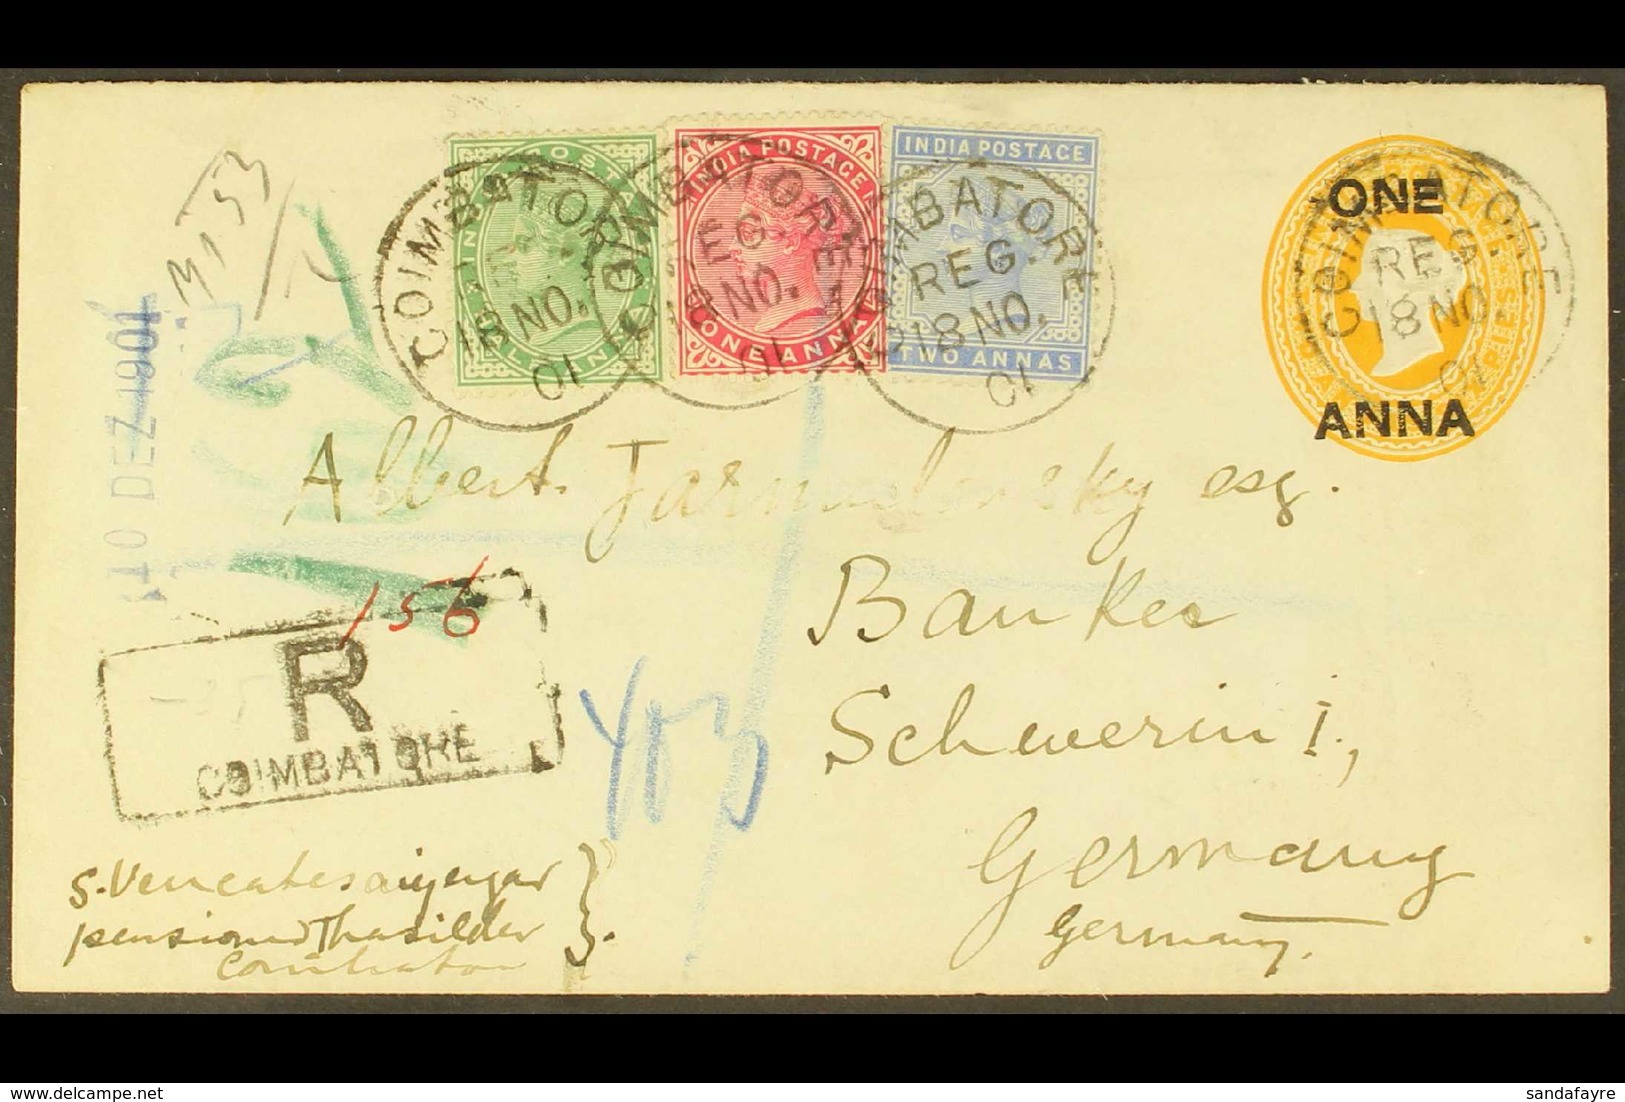 INDIA POSTAGE
INDIA POSTAGE
TWO ANNAS
ONE ANNA
COIMBATORE
18 NO.
01
COIMBATORE
REG.
18 NO.
01
COIMBATORE
REG.
18 NO.
01
ONE
ANNA
COIMBATORE
REG.
18 NO.
01
10 DEZ 1901
Albert Jarusslowsky esq.
Banker
Schwerin I.,
Germany
Germany.
156
R
COIMBATORE
403
S. Vencatesaiyengar
pensioned Thasildar
Coimbatore
sandafayre.com